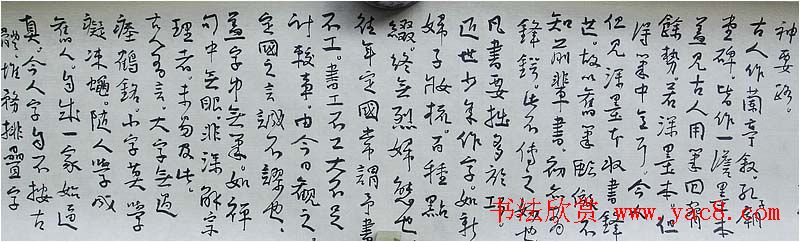 神要路。
古人作蘭亭叙、孔子廟
堂碑。皆作一淡墨本
蓋見古人用筆回腕
餘勢。若深墨本。但
得筆中意耳。今人
但見深墨本收書鋒
芒。故以舊筆臨仿不
知前輩書。初亦有
鋒鍔。此不傳之妙也
凡書要拙多於工。
近世少年作字。如新
婦子妝梳。百種點
綴。終無烈婦態也
往年定國常謂予書
不工。書工不工大不足
計較事。由今日觀之。
定國之言誠不謬也
蓋字中無筆。如禪
句中無眼。非深解宗
理者。未易及此。
古人有言。大字無過
瘞鶴銘。小字莫學
癡凍蠅。隨人學成
舊人。自成一家始逼
真。今人字自不按古
體。惟務排疊字
书法欣赏 www.yac8.com